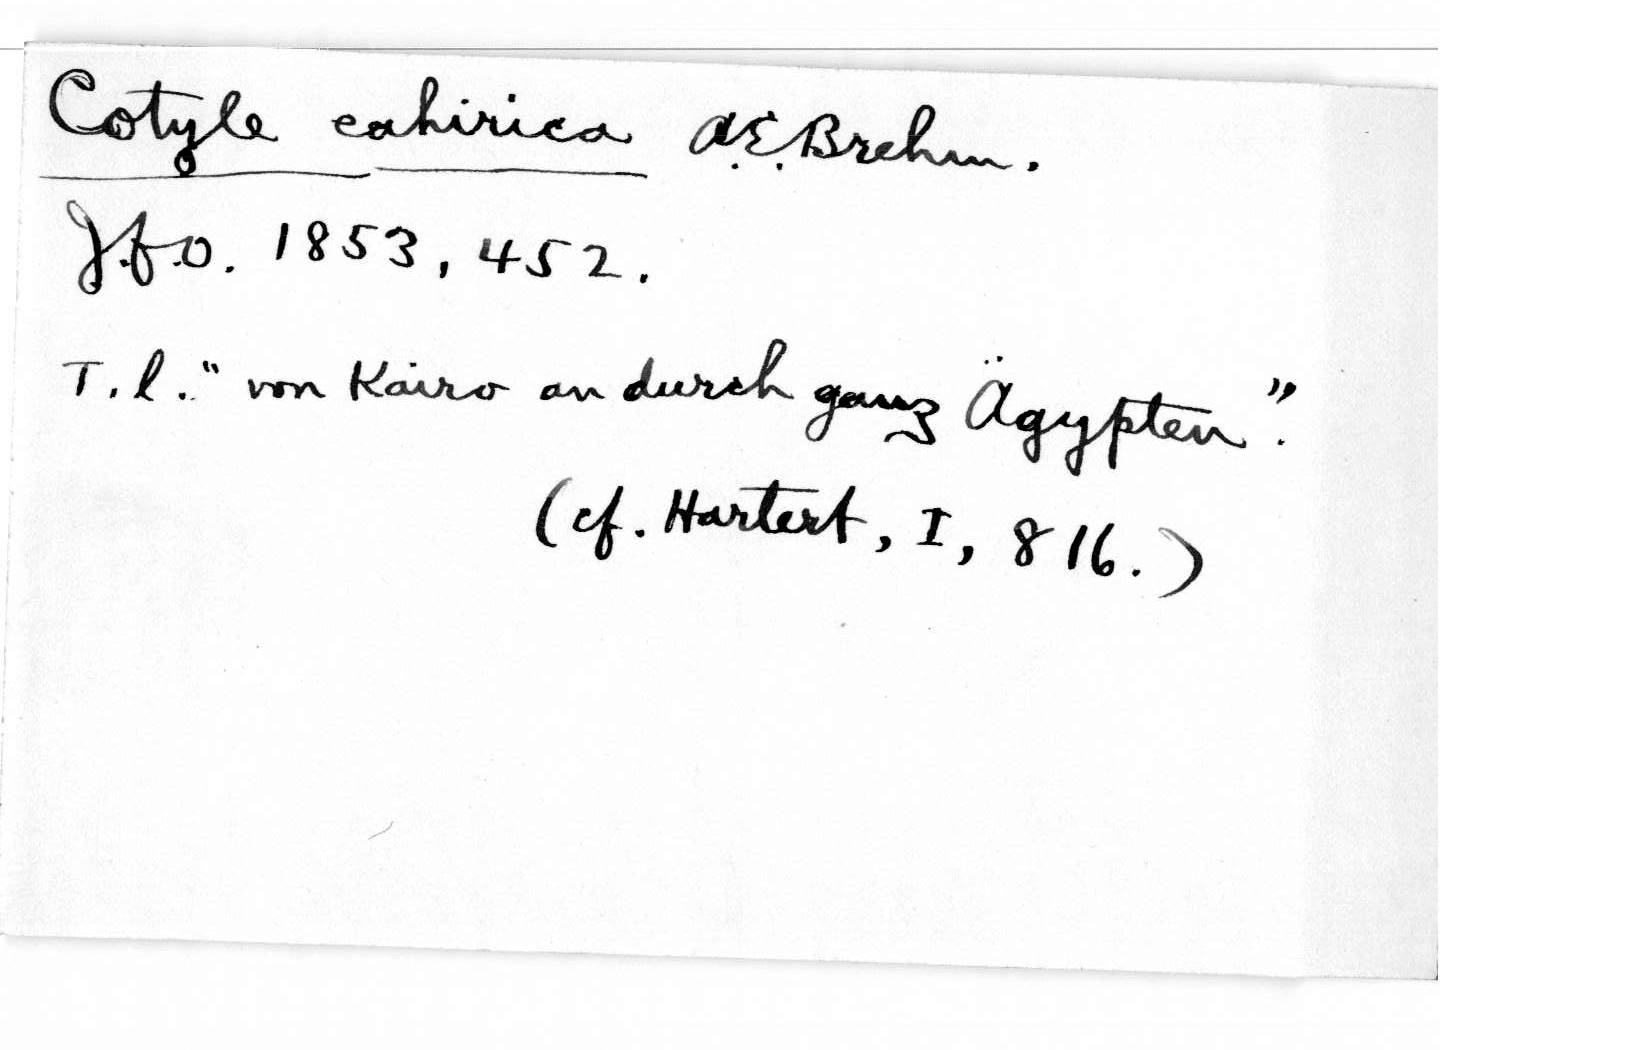 Cotyle cahirica A.E. Brehm.
J.f.O. 1853, 452.
T. l. "von Kairo an durch ganz Ägypten".
(cf. Hartert, I, 816.)